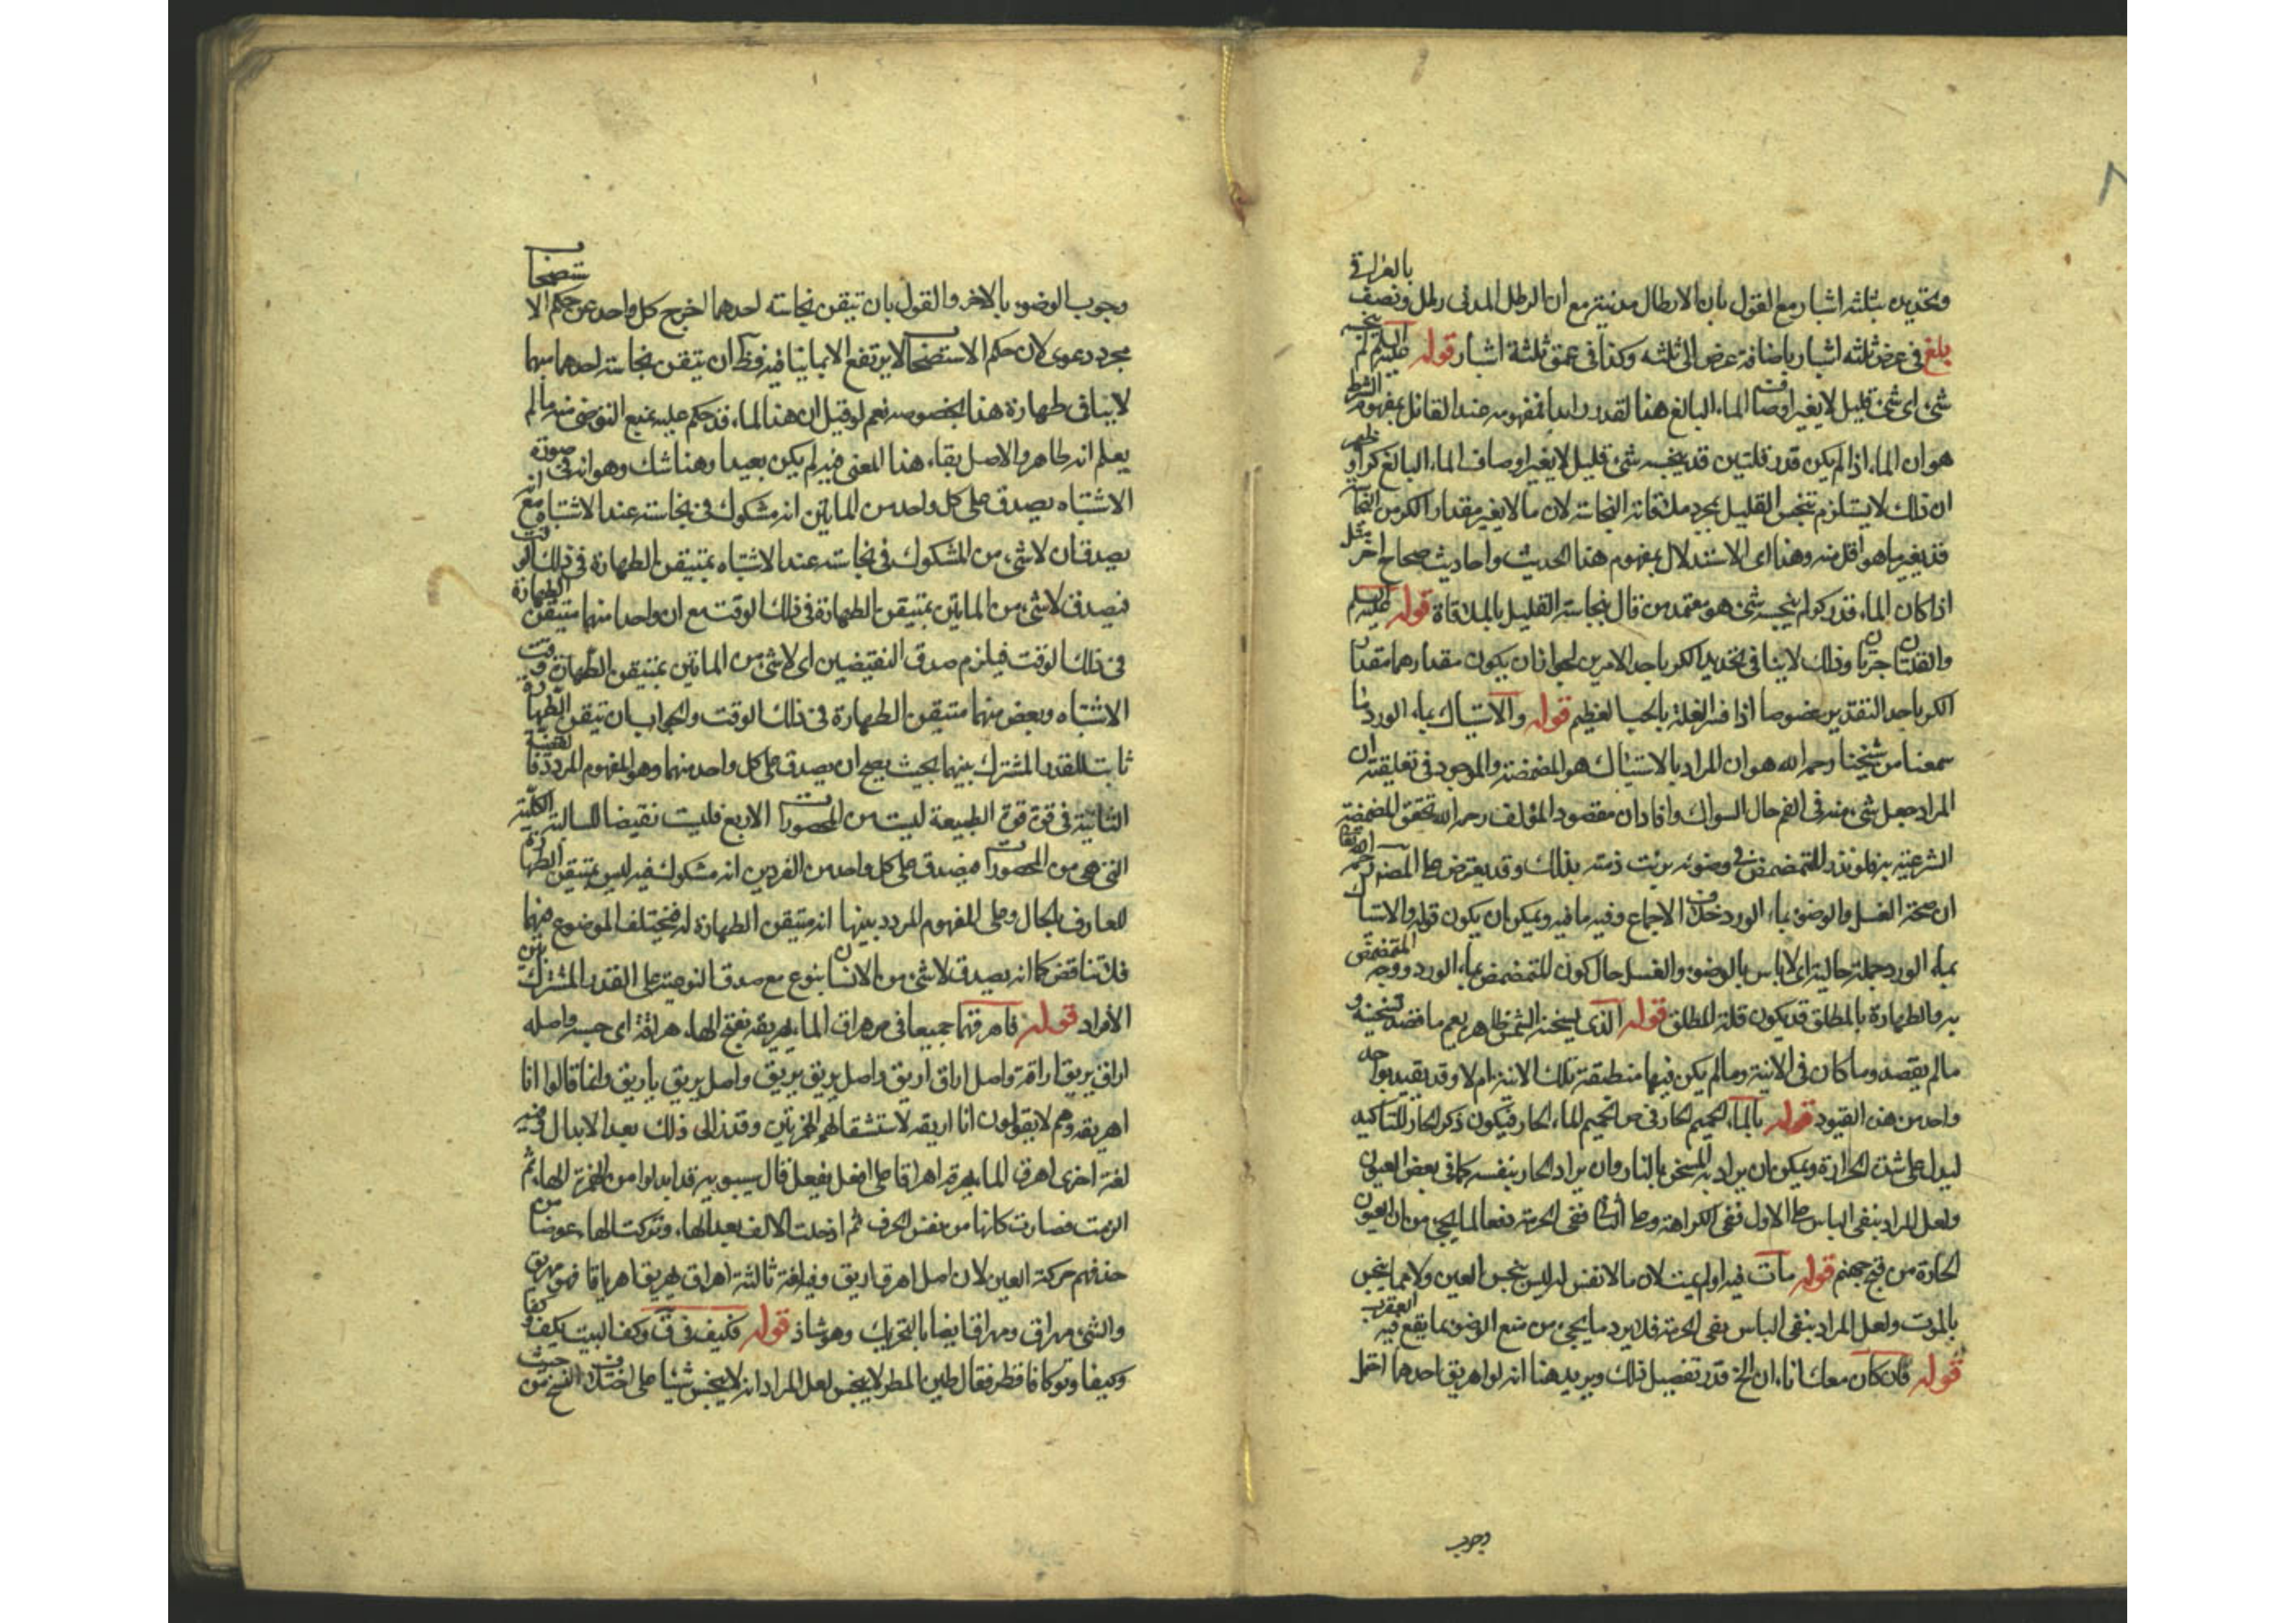 وتحديده بثلثه اشبار مع القول بان الارطال مدنية مع ان الرطل المدنى رطل ونصف بالعراقى
بلغ فى عرض ثلثه اشبار باضافة عرض الى ثلثه وكذا فى عمق ثلثة اشبار قوله عليه السلم لم ينجسه
شئ اى شئ قليل لا يغير اوصاف الماء البالغ هذا القدر ابدا بمفهومه عند القائل بمفهوم الشرط
هو ان الماء اذا لم يكن قدر قلتين قد ينجسه شئ قليل لا يغير اوصاف الماء البالغ كرا و
ان ذلك لا يستلزم تنجس القليل بمجرد ملاقاته النجاسة لان ما لا يغير مقدار الكر من النجاسة
قد يغير ما هو اقل منه وهذا اى الاستدلال بمفهوم هذا الحديث واحاديث صحاح اخر مثل
اذا كان الماء قدر كر لم ينجسه شئ هو معتمد من قال بنجاسة القليل بالملاقاة قوله عليه السلم
والقلتان جرتان وذلك لا ينافى تحديد الكر باحد الامرين لجواز ان يكون مقدارهما مقدار
الكر باحد التقديرين خصوصا اذا فسر القلة بالحب العظيم قوله والاستياك بماء الورد ما
سمعنا من شيخنا رحمه الله هو ان المراد بالاستياك هو المضمضة والموجود فى تعليقته ان
المراد جعل شئ منه فى الفم حال السواك وافاد ان مقصود المؤلف رحمه الله تحقق المضمضة
الشرعية به فلو نذر المتمضمض فى وضوئه برئت ذمته بذلك وقد يعترض على المصنف رحمه الله تعالى
ان صحة الغسل والوضوء بماء الورد خلاف الاجماع وفيه ما فيه ويمكن ان يكون قوله والاستياك
بماء الورد جملة حالية اى لا باس بالوضوء والغسل حال كون المتمضمض بماء الورد ووجه المتمضمض
به والطهارة بالمطلق قد يكون قلة المطلق قوله الذى يسخنه الشمس ظاهره يعم ما قصد تسخينه و
ما لم يقصد وما كان فى الانية وما لم يكن فيها منطبقة تلك الانية ام لا وقد يقيد بواحد
واحد من هذه القيود قوله بالماء الحميم الحار فى ص الحميم الماء الحار فيكون ذكر الحار للتاكيد
ليدل على شدة الحرارة ويمكن ان يراد به المسخن بالنار وان يراد الحار بنفسه كما فى بعض العيون
ولعل المراد بنفى الباس على الاول نفى الكراهة وعلى الثانى نفى الحرمة دفعا لما يجئ من ان العيون
الحارة من فتح جهنم قوله مات فيه او لم يمت لان ما لا نفس له ليس بنجس العين ولا مما ينجس
بالموت ولعل المراد بنفى الباس نفى الحرمة فلا يرد ما يجئ من منع الوضوء بما يقع فيه العقرب
قوله فان كان معك اناءان الخ قد مر تفصيل ذلك ويريد هنا انه لو اهريق احدهما احتمل
وجوب
وجوب الوضوء بالاخر والقول بان تيقن نجاسته احدهما اخرج كل واحد عن حكم الاستصحاب
مجرد دعوى لان حكم الاستصحاب لا يرتفع الا بما ينافيه وظ ان تيقن نجاسة احدهما مبهما
لا ينافى طهارة هذا بخصوصه نعم لو قيل ان هذا الماء قد حكم عليه بمنع التوضى منه ما لم
يعلم انه طاهر والاصل بقاء هذا المعنى فيه لم يكن بعيدا وهنا شك وهو انه فى صورة
الاشتباه يصدق على كل واحد من المائين انه مشكوك فى نجاسته عند الاشتباه مع انه
يصدق ان لا شئ من المشكوك فى نجاسته عند الاشتباه بمتيقن الطهارة فى ذلك الوقت
فيصدق لا شئ من المائين بمتيقن الطهارة فى ذلك الوقت مع ان واحدا منهما متيقن الطهارة
فى ذلك الوقت فيلزم صدق النقيضين اى لا شئ من المائين بمتيقن الطهارة وقت
الاشتباه وبعض منهما متيقن الطهارة فى ذلك الوقت والجواب ان تيقن الطهارة
ثابت للقدر المشترك بينهما بحيث يصح ان يصدق على كل واحد منهما وهو المفهوم المردد فالقضية
الثانية فى قوة قوة الطبيعة ليست من المحصورات الاربع فليست نقيضا للسالبة الكلية
التى هى من المحصورات فيصدق على كل واحد من الفردين انه مشكوك فيه ليس بمتيقن الطهارة
للعارف بالحال وعلى المفهوم المردد بينها انه متيقن الطهارة له فيختلف الموضوع فيهما
فلا تناقض كما انه يصدق لا شئ من الانسان بنوع مع صدق النوعية على القدر المشترك بين
الافراد قوله فاهرقهما جميعا فى ص هراق الماء يهريقه بفتح الهاء هراقة اى صبه واصله
اراق يريق اراقة واصل اراق اريق واصل يريق يريق واصل يريق يأريق وانما قالوا انا
اهريقه وهم لا يقولون انا اأريقه لاستثقالهم الهمزتين وقد زال ذلك بعد الابدال وفيه
لغة اخرى اهرق الماء يهرقه اهراقا على افعل يفعل قال سيبويه قد ابدلوا من الهمزة الهاء ثم
الزمت فصارت كانها من نفس الحرف ثم ادخلت الالف بعد الهاء وتركت الهاء عوضا من
حذفهم حركة العين لان اصل اهرق اريق وفيه لغة ثالثة اهراق يهريق اهرياقا فهو مهريق
والشئ مهراق ومهراق ايضا بالتحريك وهو شاذ قوله فكيف فى ق وكف البيت يكف وكفا
وكيفا وتوكافا قطر فقال طين المطر لا ينجس لعل المراد انه لا ينجس شيئا على اختلاف النسخ من حيث